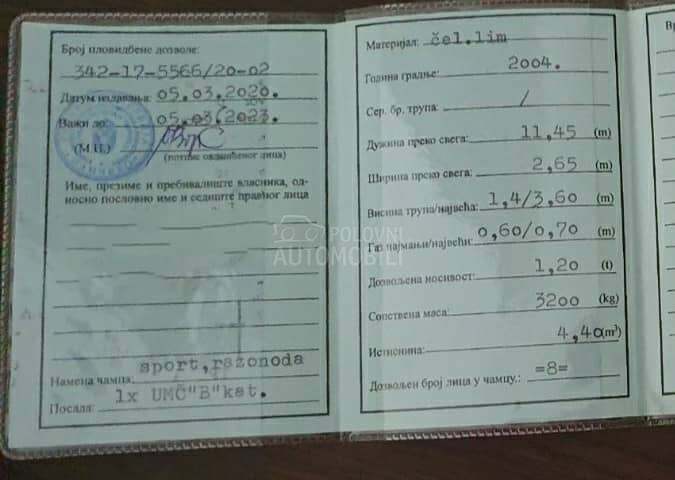 Број пловидбене дозволе:
342-17-5566/20-02
Датум издавања: 05.03.2020.
Важи до: 05.03.2023.
(М.П.)
(потпис овлашћеног лица)
Име, презиме и пребивалиште власника, од-
носно пословно име и седиште правног лица
Намена чамца: sport,razonoda
Посада: 1x UMČ"B"kat.
Материјал: čel.lim
Година градње: 2004.
Сер. бр. трупа: /
Дужина преко свега: 11,45 (m)
Ширина преко свега: 2,65 (m)
Висина трупа/највећа: 1,4/3,60 (m)
Газ најмањи/највећи: 0,60/0,70 (m)
Дозвољена носивост: 1,20 (t)
Сопствена маса: 3200 (kg)
Истиснина: 4,40 (m³)
Дозвољен број лица у чамцу.: =8=
POLOVNI
AUTOMOBILI